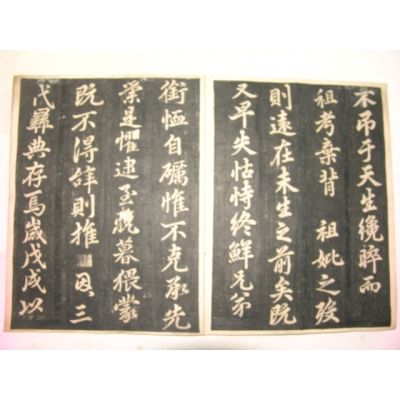 不吊于天生纔晬而
祖考棄背 祖妣之歿
則遠在未生之前矣既
又早失怙恃終鮮兄弟
銜恤自礪惟不克承先
榮是懼逮至晼暮猥蒙
既不得辞則推 恩三
代彞典存焉歲戊戌以